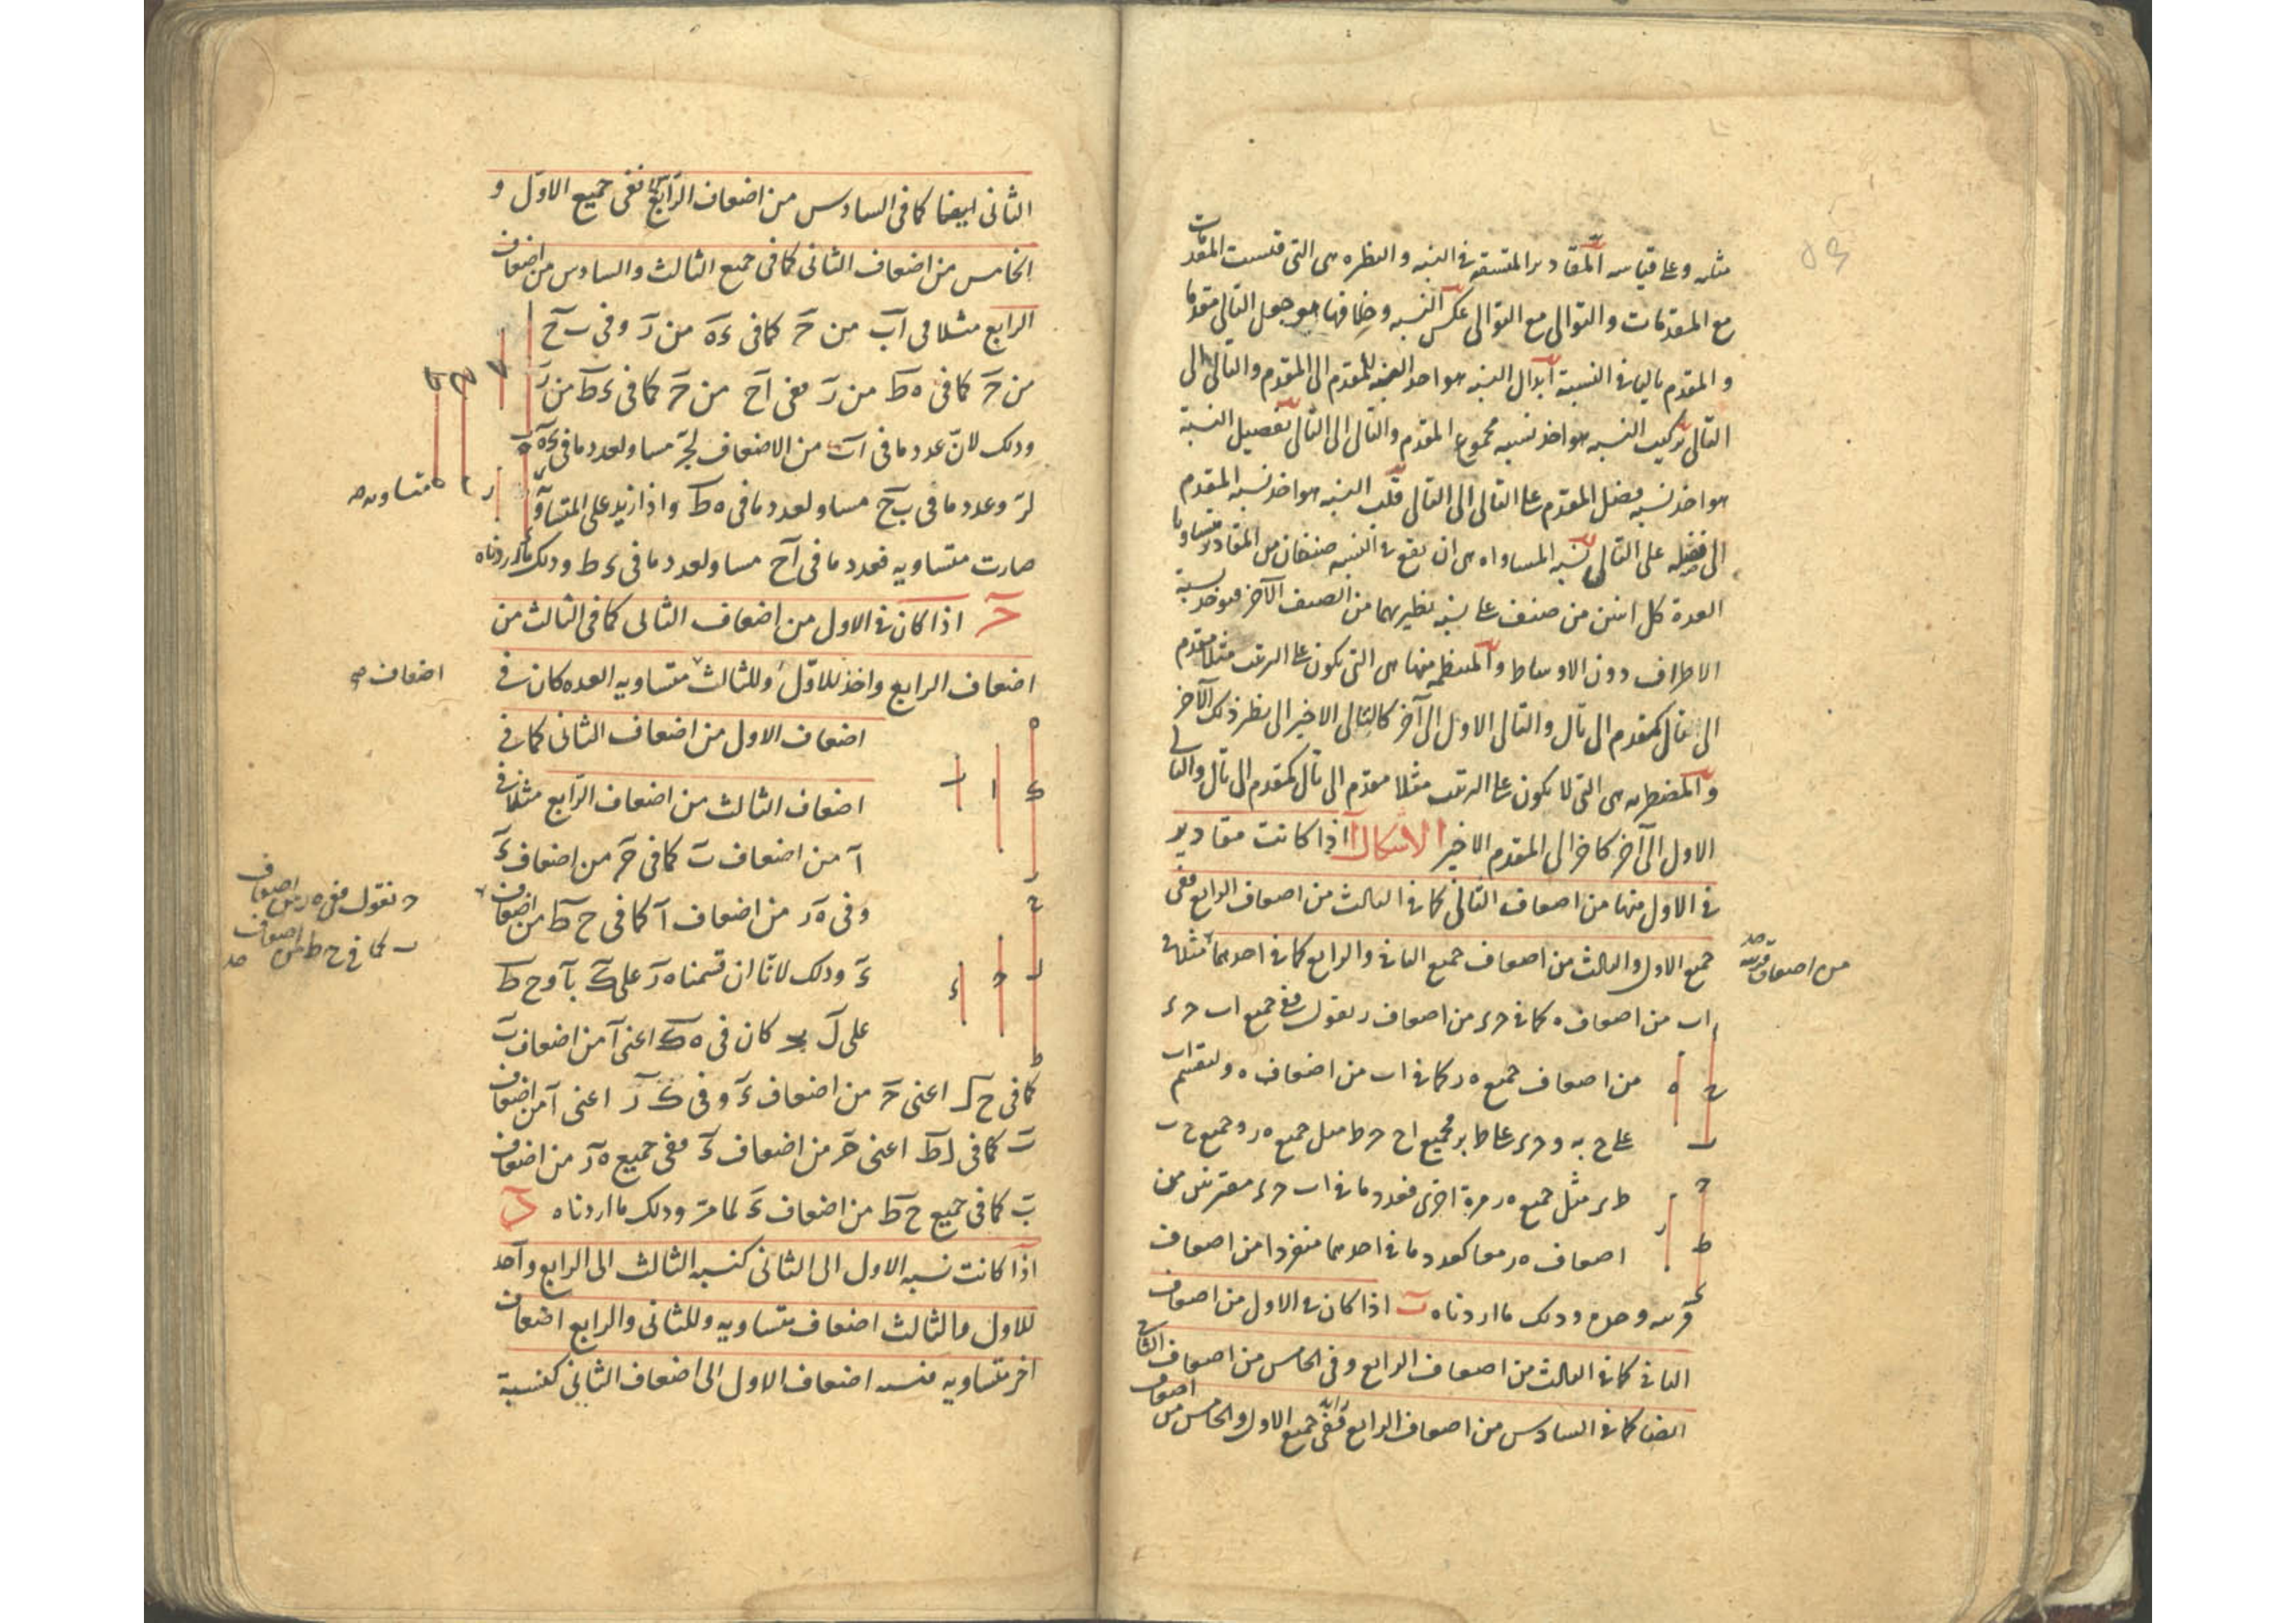 مثله وعلى قياسه المقادير المتسقة في النسبة والنظيرة هي التي قيست المقدمات
مع المقدمات والتوالي مع التوالي عكس النسبة وخلافها هو جعل التالي مقدما
والمقدم تاليا في النسبة ابدال النسبة هو اخذ النسبة للمقدم الى المقدم والتالى الى
التالى تركيب النسبة هو اخذ نسبه مجموع المقدم والتالى الى التالى تفصيل النسبة
هو اخذ نسبه فضل المقدم على التالى الى التالى قلب النسبه هو اخذ نسبه المقدم
الى فضله على التالى نسبه المساواه هى ان يقع فى النسبه صنفان من المقادير متساويا
العدة كل اثنين من صنف على نسبه نظيريهما من الصنف الآخر فتوخذ نسبة
الاطراف دون الاوساط والمنتظمه منها هى التى تكون على الترتيب مثلا مقدم
الى تال كمقدم الى تال والتالى الاول الى آخر كالتالى الاخير الى نظير ذلك الآخر
والمضطربه هى التى لا تكون على الترتيب مثلا مقدم الى تال كمقدم الى تال والتالى
الاول الى آخر كاخر الى المقدم الاخير الاشكال ا اذا كانت مقادير
فى الاول منها من اضعاف الثانى كما فى الثالث من اضعاف الرابع ففى
جميع الاول والثالث من اضعاف جميع الثانى والرابع كما فى احدهما مثلا فى
من اضعاف قرينه صح
ا ب من اضعاف ه كما فى ح ء من اضعاف ر نقول ففى جميع ا ب ح ء
من اضعاف جميع ه ر كما فى ا ب من اضعاف ه ولنقسم ا ب
على ح به و ح ء على ط بر فجميع ا ح ح ط مثل جميع ه ر وجميع ح ب
ط ء مثل جميع ه ر مرة اخرى فعدد ما فى ا ب ح ء مقترنين من
اضعاف ه ر معا كعدد ما فى احدهما منفردا من اضعاف
قرينه وحده وذلك ما اردناه ب اذا كان فى الاول من اضعاف
الثانى كما فى الثالث من اضعاف الرابع وفى الخامس من اضعاف الثانى
ايضا كما فى السادس من اضعاف الرابع ففى جميع الاول والخامس من اضعاف
الثانى ايضا كما فى السادس من اضعاف الرابع ففى جميع الاول و
الخامس من اضعاف الثانى كما فى جميع الثالث والسادس من اضعاف
الرابع مثلا فى اب من ح كما فى ءه من ر وفى ب ح
من ح كما فى ه ط من ر ففى اح من ح كما فى ء ط من ر
وذلك لان عدد ما فى اب من الاضعاف لح مساو لعدد ما فى ءه
لر وعدد ما فى ب ح مساو لعدد ما فى ه ط واذا زيد على المتساو
متساويه صح
صارت متساويه فعدد ما فى اح مساو لعدد ما فى ء ط وذلك ما اردناه
ح اذا كان فى الاول من اضعاف الثانى كما فى الثالث من
اضعاف الرابع واخذ للاول وللثالث متساويه العده كان فى
اضعاف صح
اضعاف الاول من اضعاف الثانى كما فى
اضعاف الثالث من اضعاف الرابع مثلا فى
ا من اضعاف ب كما فى ح من اضعاف ء
وفى ه ر من اضعاف ا كما فى ح ط من اضعاف
ح نقول ففى ه ر من اضعاف
ب كما فى ح ط من اضعاف صح
ء وذلك لانا ان قسمنا ه ر على ك با و ح ط
على ل بح كان فى ه ك اعنى ا من اضعاف ب
كما فى ح ل اعنى ح من اضعاف ء وفى ك ر اعنى ا من اضعاف
ب كما فى ل ط اعنى ح من اضعاف ء ففى جميع ه ر من اضعاف
ب كما فى جميع ح ط من اضعاف ء لما مر وذلك ما اردناه د
اذا كانت نسبه الاول الى الثانى كنسبه الثالث الى الرابع واخذ
للاول والثالث اضعاف متساويه وللثانى والرابع اضعاف
اخر متساويه فنسبه اضعاف الاول الى اضعاف الثانى كنسبة